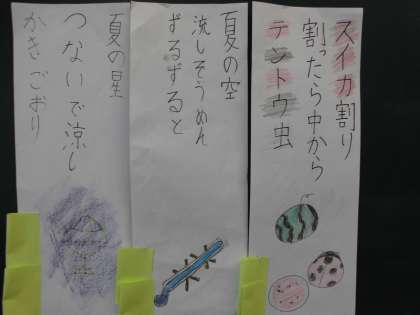 スイカ割り
割ったら中から
テントウ虫
夏の空
流しそうめん
ずるずると
夏の星
つないで涼し
かきごおり